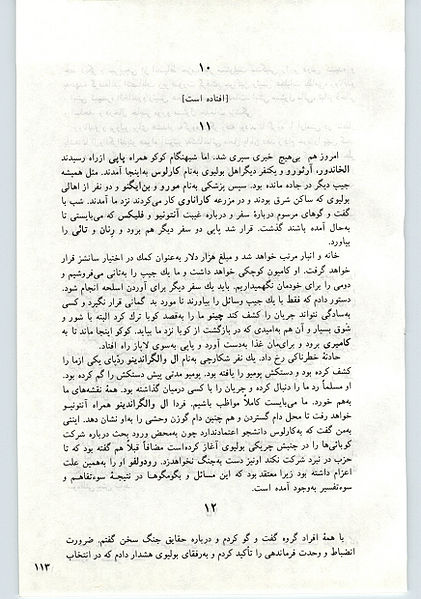 ۱۰
[افتاده است]
۱۱
امروز هم بی‌هیچ خبری سپری شد. اما شبهنگام کوکو همراه پاپی ازراه رسیدند
الخاندور، آرتورو و یکنفر دیگراهل بولیوی به‌نام کارلوس به‌اینجا آمدند. مثل همیشه
جیپ دیگر در جاده مانده بود. سپس پزشکی به‌نام مورو و بن‌ایگنو و دو نفر از اهالی
بولیوی که ساکن شرق بودند و در مزرعه کاراناوی کار می‌کردند نزد ما آمدند. شب با
گفت و گوهای مرسوم دربارهٔ سفر و درباره غیبت آنتونیو و فلیکس که می‌بایستی تا
به‌حال آمده باشند گذشت. قرار شد پاپی دو سفر دیگر هم برود و رنان و تانی را
بیاورد.
خانه و انبار مرتب خواهد شد و مبلغ هزار دلار به‌عنوان کمك در اختیار سانشز قرار
خواهد گرفت. او کامیون کوچکی خواهد داشت و ما یك جیپ را به‌تانی می‌فروشیم و
دومی را برای خودمان نگهمیداریم. باید یك سفر دیگر برای آوردن اسلحه انجام شود.
دستور دادم که فقط با یك جیپ وسائل را بیاورند تا مورد بد گمانی قرار نگیرد و کسی
به‌سادگی نتواند جریان را کشف کند چینو ما را به‌قصد کوبا ترك کرد البته با شور و
شوق بسیار و آن هم به‌امیدی که در بازگشت از کوبا نزد ما بیاید. کوکو اینجا ماند تا به
کامیری برود و برای‌مان غذا به‌دست آورد و پاپی به‌سوی لاپاز راه افتاد.
حادثهٔ خطرناکی رخ داد. یك نفر شکارچی به‌نام ال والگراندینو ردّپای یکی ازما را
کشف کرده بود و دستکش پومبو را یافته بود. پومبو مدتی پیش دستکش را گم کرده بود.
او مسلماً رد ما را دنبال کرده و جریان را با کسی درمیان گذاشته بود. همهٔ نقشه‌های ما
به‌هم خورد. ما می‌بایست کاملاً مواظب باشیم. فردا ال والگراندینو همراه آنتونیو
خواهد رفت تا محل دام گستردن و هم چنین دام گوزن وحشی را به‌او نشان دهد. اینتی
به‌من گفت که به‌کارلوس دانشجو اعتمادندارد چون به‌محض ورود بحث درباره شرکت
کوبائی‌ها را در جنبش چریکی بولیوی آغاز کرده‌است مضافاً قبلاً هم گفته بود که تا
حزب در نبرد شرکت نکند اونیز دست به‌جنگ نخواهدزد. رودولفو او را به‌همین علت
اعزام داشته بود زیرا معتقد بود که این مسائل و بگومگوها در نتیجهٔ سوءتفاهم و
سوءتفسیر به‌وجود آمده است.
۱۲
با همهٔ افراد گروه گفت و گو کردم و درباره حقایق جنگ سخن گفتم. ضرورت
انضباط و وحدت فرماندهی را تأکید کردم و به‌رفقای بولیوی هشدار دادم که در انتخاب
۱۱۳